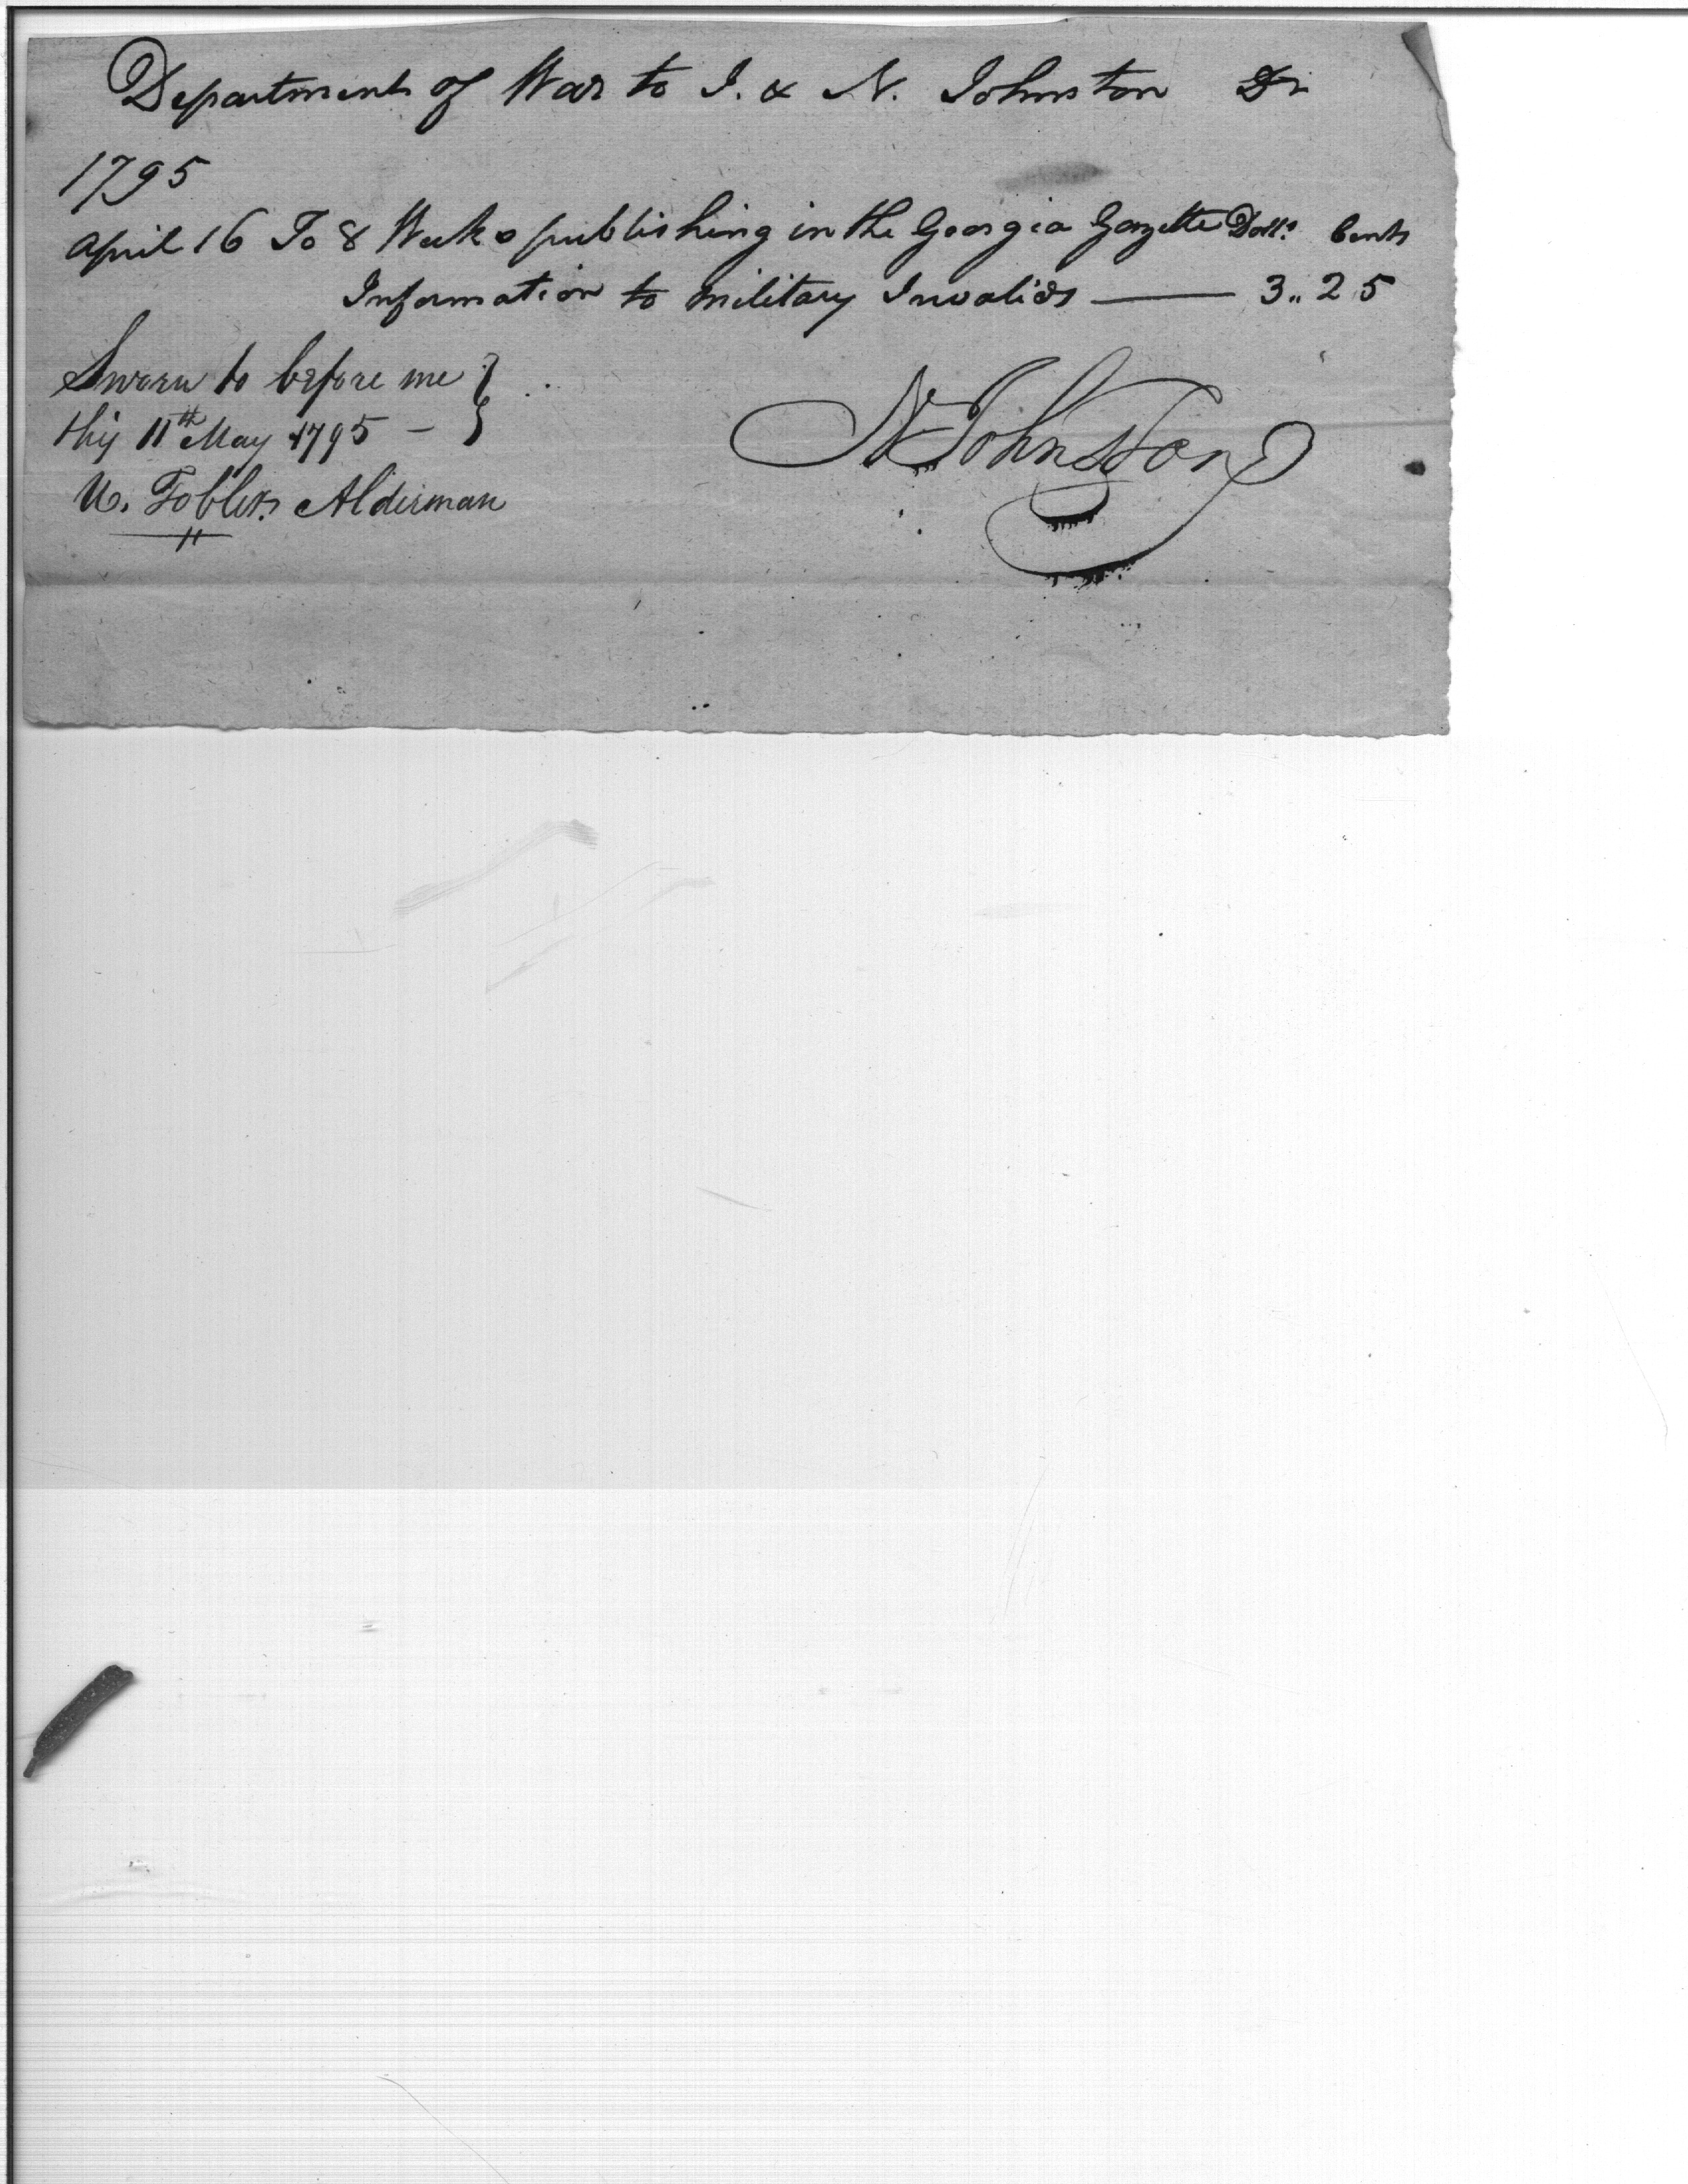 Department of War to J. & N. Johnston Dr
1795
April 16 To 8 Weeks publishing in the Georgia Gazette Dolls. Cents
Information to military Invalids — 3.. 25
Sworn to before me
this 11th May 1795 —
U. Tobler. Alderman
N Johnston